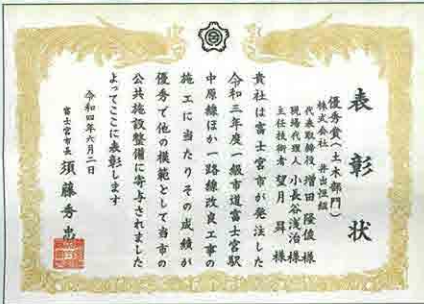 表彰状
優秀賞(土木部門)
株式会社 井出組
代表取締役 増田隆俊様
現場代理人 小長谷浅治様
主任技術者 望月昇様
貴社は富士宮市が発注した
令和三年度一級市道富士宮駅
中原線ほか一路線改良工事の
施工に当たりその成績が
優秀で他の模範として当市の
公共施設整備に寄与されました
よってここに表彰します
令和四年六月二日
富士宮市長 須藤秀忠